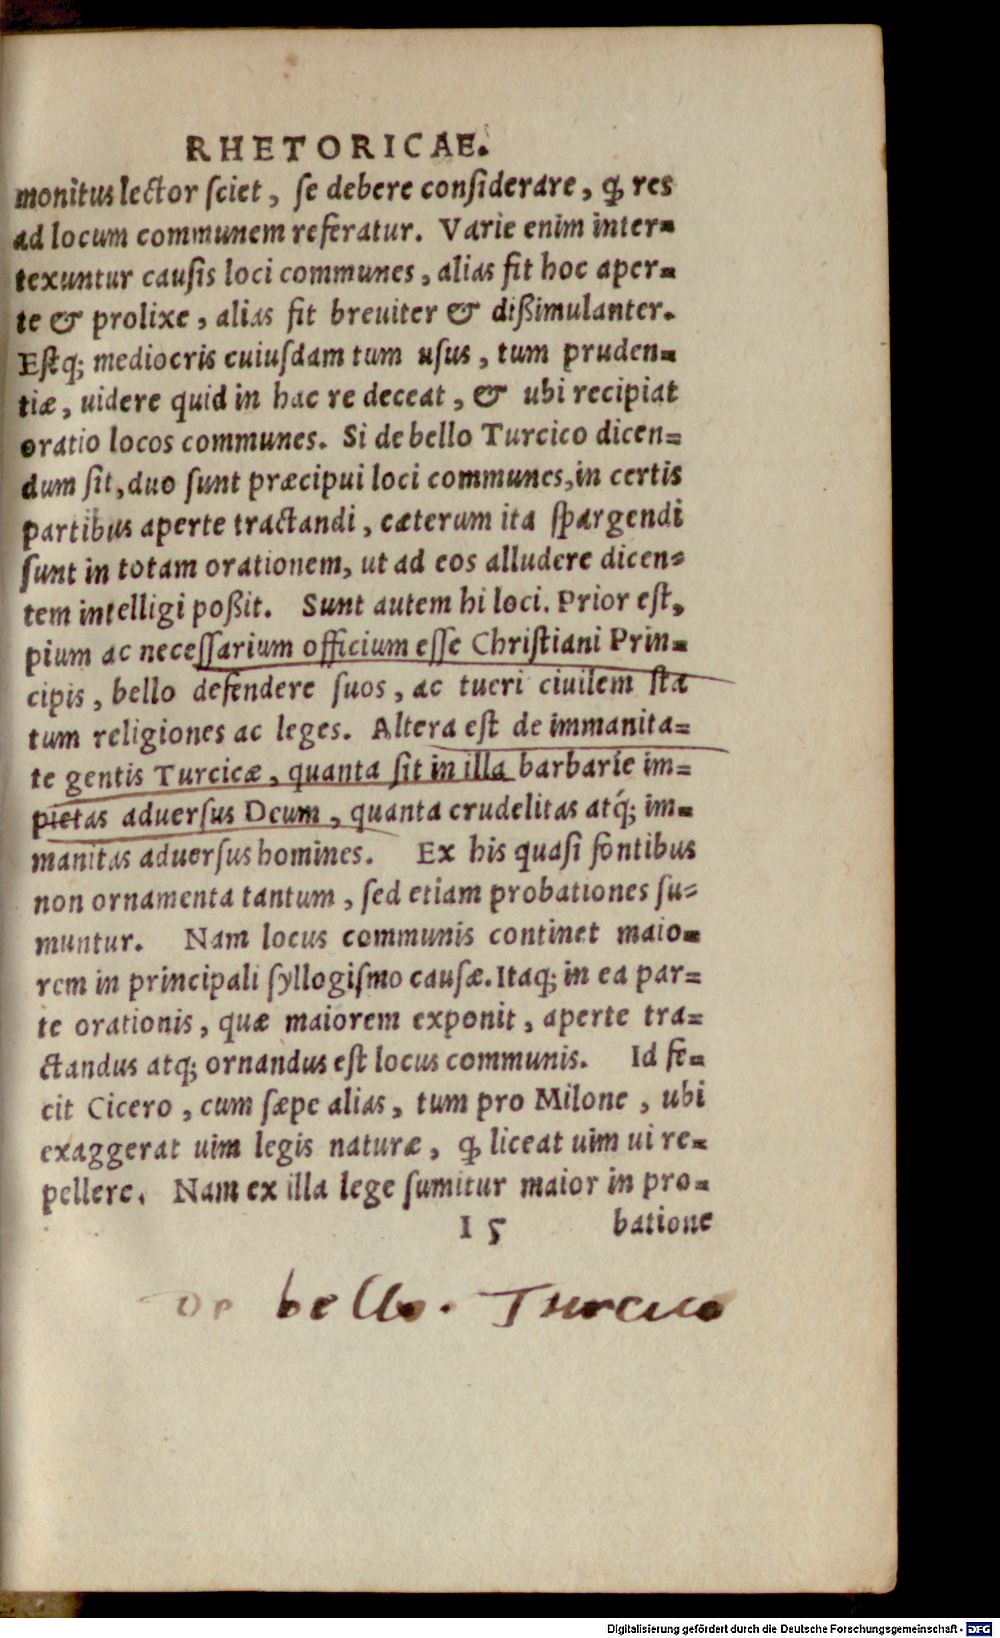 RHETORICAE.
monitus lector ſciet, ſe debere conſiderare, ꝙ res
ad locum communem referatur. Varie enim inter=
texuntur cauſis loci communes, alias fit hoc aper=
te & prolixe, alias fit breuiter & dißimulanter.
Eſtq; mediocris cuiuſdam tum uſus, tum pruden=
tiæ, uidere quid in hac re deceat, & ubi recipiat
oratio locos communes. Si de bello Turcico dicen=
dum ſit, duo ſunt præcipui loci communes, in certis
partibus aperte tractandi, cæterum ita ſpargendi
ſunt in totam orationem, ut ad eos alludere dicen=
tem intelligi poßit. Sunt autem hi loci. Prior eſt,
pium ac neceſſarium officium eſſe Chriſtiani Prin=
cipis, bello defendere ſuos, ac tueri ciuilem ſta
tum religiones ac leges. Altera eſt de immanita=
te gentis Turcicæ, quanta ſit in illa barbarie im=
pietas aduerſus Deum, quanta crudelitas atq́; im=
manitas aduerſus homines. Ex his quaſi fontibus
non ornamenta tantum, ſed etiam probationes ſu=
muntur. Nam locus communis continet maio=
rem in principali ſyllogiſmo cauſæ. Itaq; in ea par=
te orationis, quæ maiorem exponit, aperte tra=
ctandus atq; ornandus eſt locus communis. Id fe=
cit Cicero, cum ſæpe alias, tum pro Milone, ubi
exaggerat uim legis naturæ, ꝙ liceat uim ui re=
pellere. Nam ex illa lege ſumitur maior in pro=
I 5 batione
De bello. Turcico
Digitalisierung gefördert durch die Deutsche Forschungsgemeinschaft - DFG